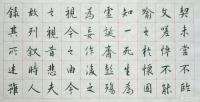 契未嘗不臨
文嗟悼不能
喻之於懷固
知一死生為
虛誕齊彭殤
為妄作後之
視今亦由今
之視昔悲夫
故列敘時人
錄其所述雖